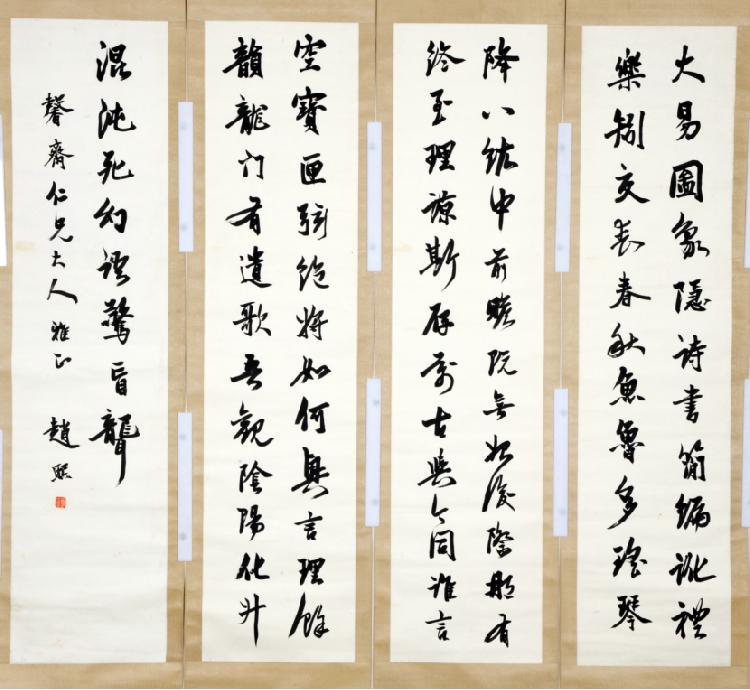 大易圖象隱詩書簡編訛禮
樂矧交喪春秋魚魯多瑤琴
降八紘中前瞻既無始後際那有
終至理諒斯存萬古與今同誰言
空寶匣弦絕將如何興言理餘
韻龍門有遺歌吾觀陰陽化升
混沌死幻語驚盲聾
馨齋仁兄大人雅正 趙熙